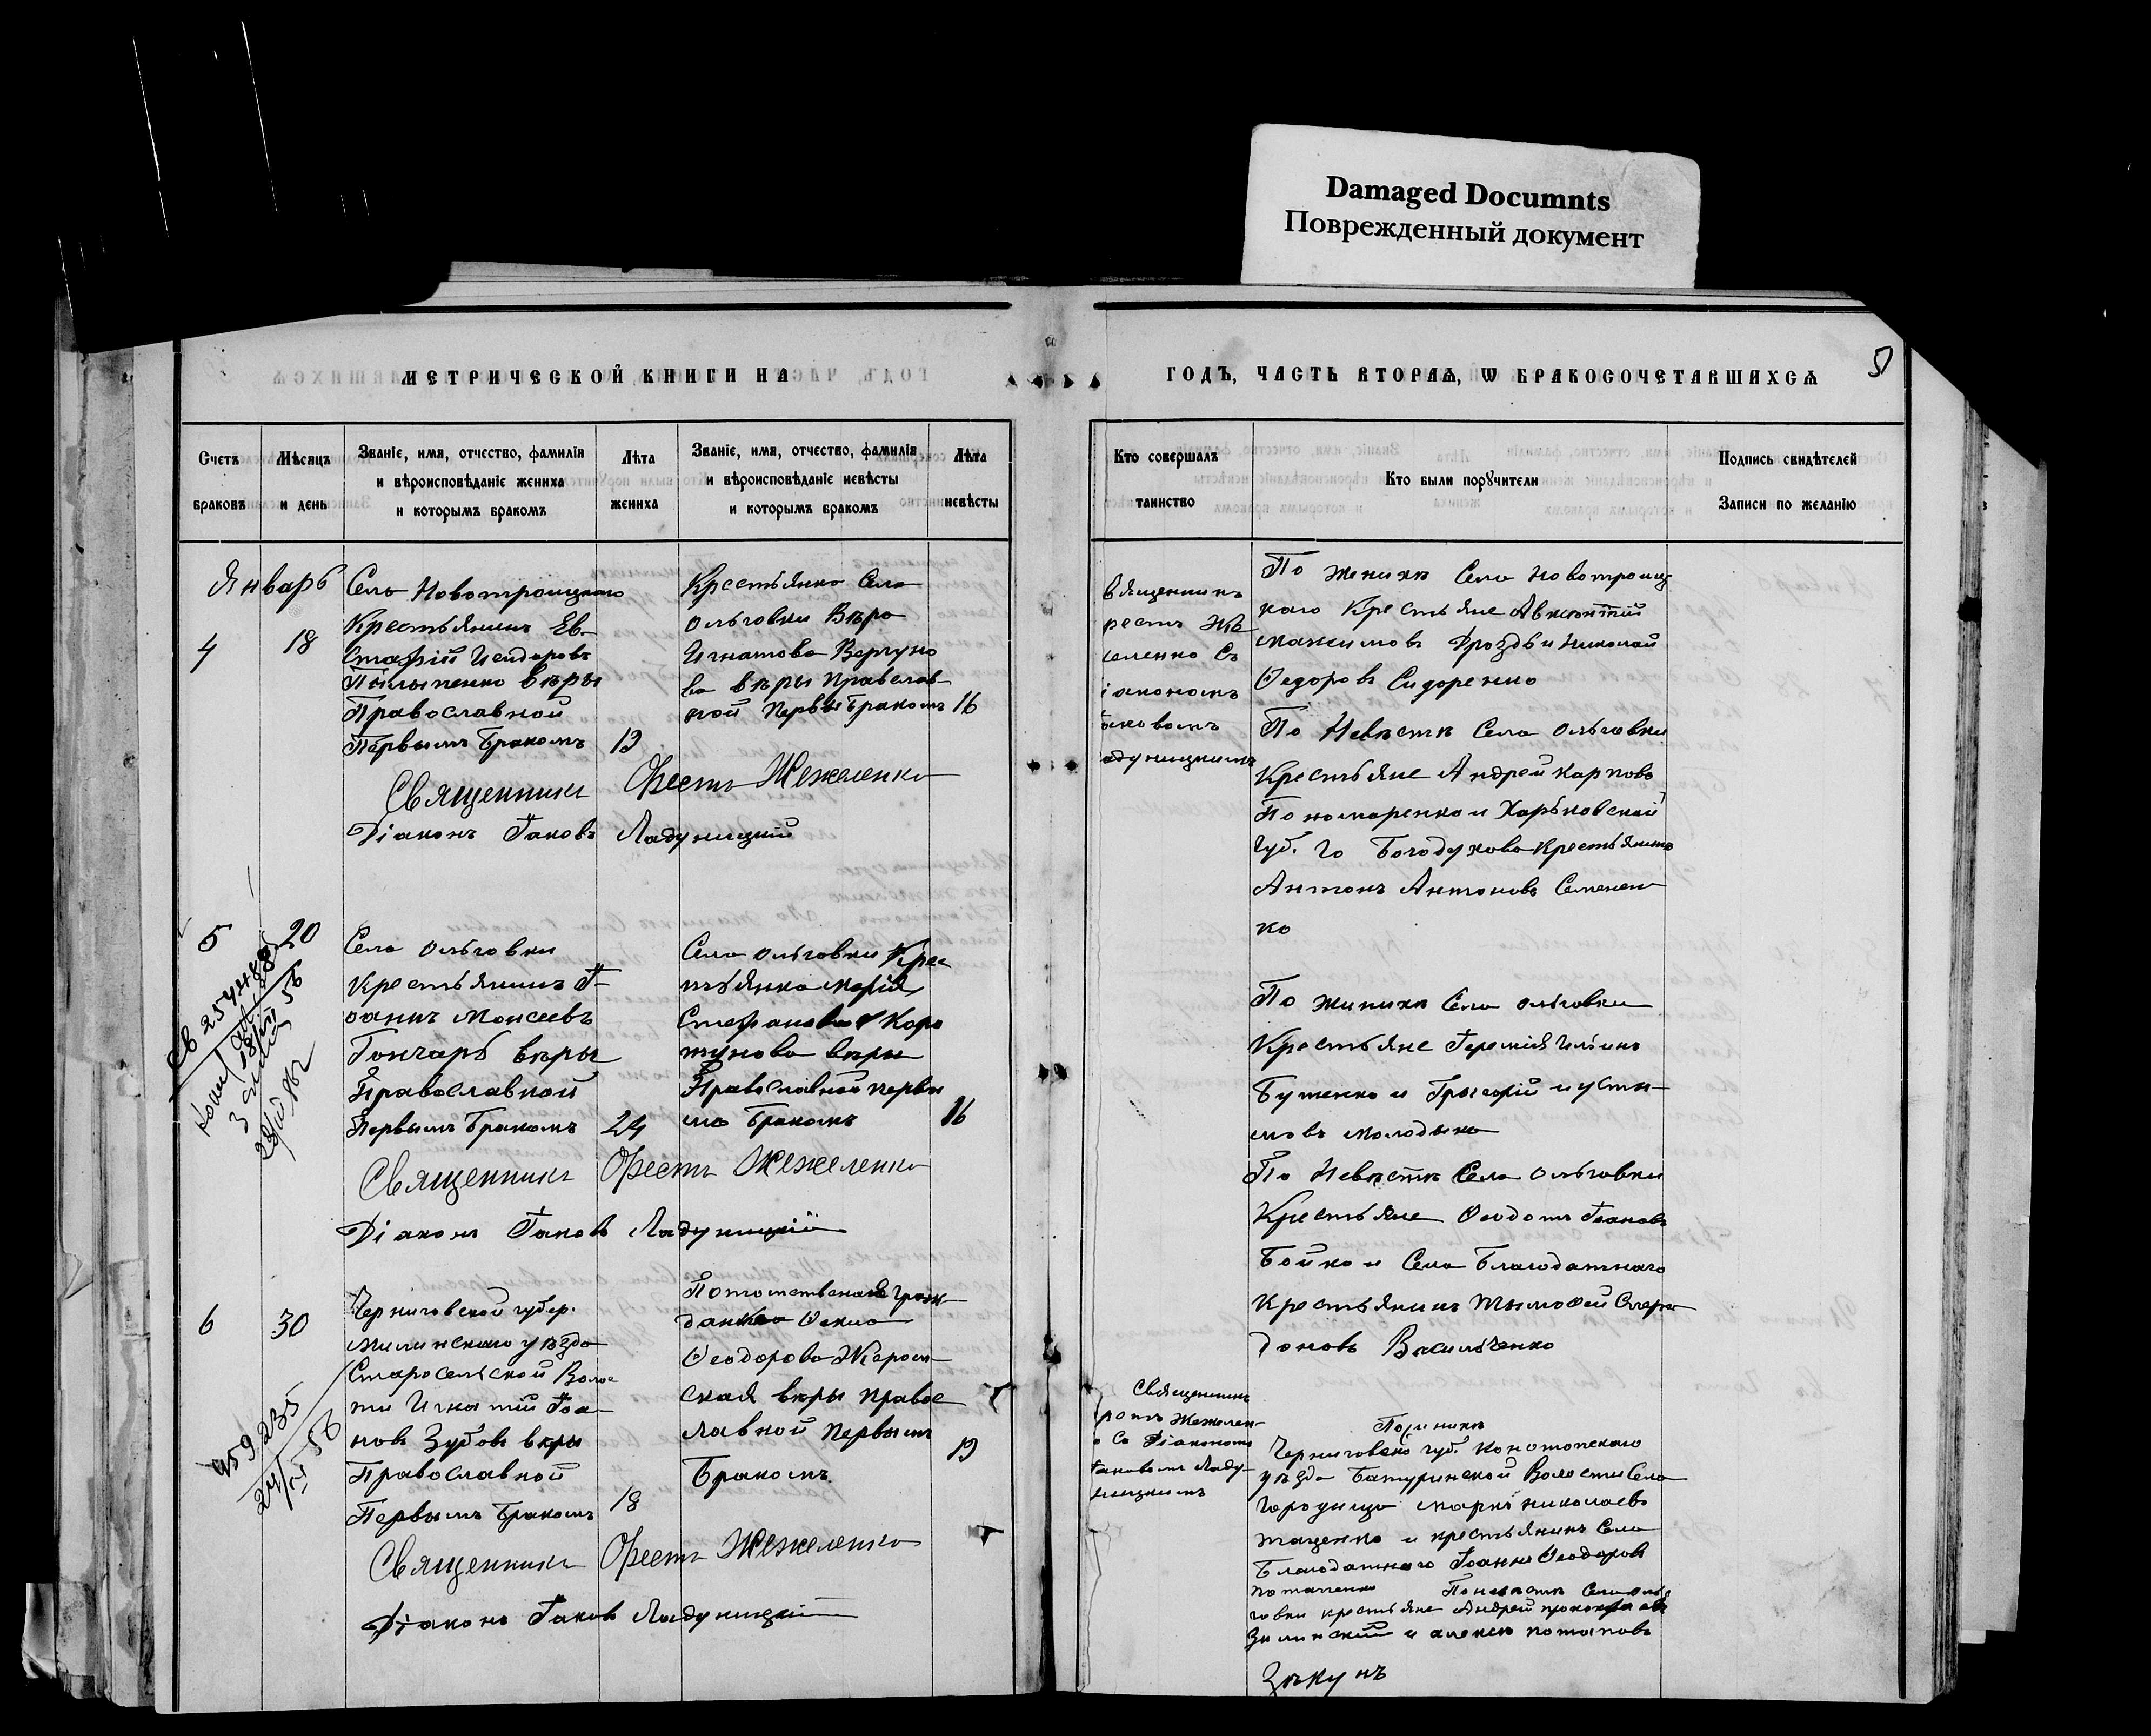 Damaged Documnts
Поврежденный документ
МЕТРИЧЕСКОЙ КНИГИ НА
ГОДЪ, ЧАСТЬ ВТОРАѦ, Ѡ БРАКОСОЧЕТАВШИХСѦ
5
Счетъ
браковъ
Мѣсяцъ
и день
Званіе, имя, отчество, фамилія
и вѣроисповѣданіе жениха
и которымъ бракомъ
Лѣта
жениха
Званіе, имя, отчество, фамилія
и вѣроисповѣданіе невѣсты
и которымъ бракомъ
Лѣта
невѣсты
Кто совершалъ
таинство
Кто были порꙋчители
Подпись свидѣтелей
Записи по желанію
Январь
4
18
Села Новотроицкаго
Крестьянинъ Ев-
стафій Исидоровъ
Пилипенко вѣры
Православной
Первымъ бракомъ
19
Крестьянка Села
Ольговки Вѣра
Игнатова Вергуно
ва вѣры Православ-
ной Первымъ бракомъ
16
Священникъ Орестъ Жежеленко
Діаконъ Іаковъ Ладуницкій
вященникъ
рестъ Же
желенко съ
іакономъ
аковомъ
адуницкимъ
По женихѣ Села Новотроиц
каго Крестьяне Авксентій
Максимовъ Дроздъ и Николай
Ѳедоровъ Сидоренко
По Невѣстѣ Села Ольговки
Крестьяне Андрей Карповъ
Пономаренко и Харьковской
Губ. го Богодухова Крестьянинъ
Антонъ Антоновъ Семенен
ко
5
20
Села Ольговки
Крестьянинъ І-
оаннъ Моисеевъ
Гончаръ вѣры
Православной
Первымъ бракомъ
24
Села Ольговки Крес
тьянка Марія
Стефанова Кор
тунова вѣры
Православной первы
мъ бракомъ
16
Священникъ Орестъ Жежеленко
Діаконъ Іаковъ Ладуницкій
По жинихѣ Села Ольговки
Крестьяне Іеремія Ильинъ
Бутенко и Григорій Иусти-
новъ Молодыка
По Невѣстѣ Села Ольговки
Крестьяне Ѳеодотъ Іоановъ
Бойко и Села Благодатнаго
Крестьянинъ Тимофей Спири
доновъ Васильченко
6
30
459235
Черниговской губер.
уѣзда
Старосельской Волос
ти Игнатій Іоа-
новъ Зубовъ вѣры
Православной
Первымъ бракомъ
18
Потомственная граж-
данка Ѳекла
Ѳеодорова Жером-
ская вѣры правос
лавной Первымъ
бракомъ
19
Священникъ Орестъ Жежеленко
Діаконъ Іаковъ Ладуницкій
Священникъ
рестъ Жежелен-
о со Діакономъ
Іаковомъ Ладу-
ницкимъ
Черниговской губ. Конотопскаго
уѣзда Батуринской Волости Села
Городища Марко Николаевъ
Тащенко и крестьянинъ Села
Благодатнаго Іоаннъ Ѳеодоровъ
Потапенко По невѣстѣ Села Оль
говки крестьяне Андрей Прокофьевъ
Зилинскій и Алексей Потаповъ